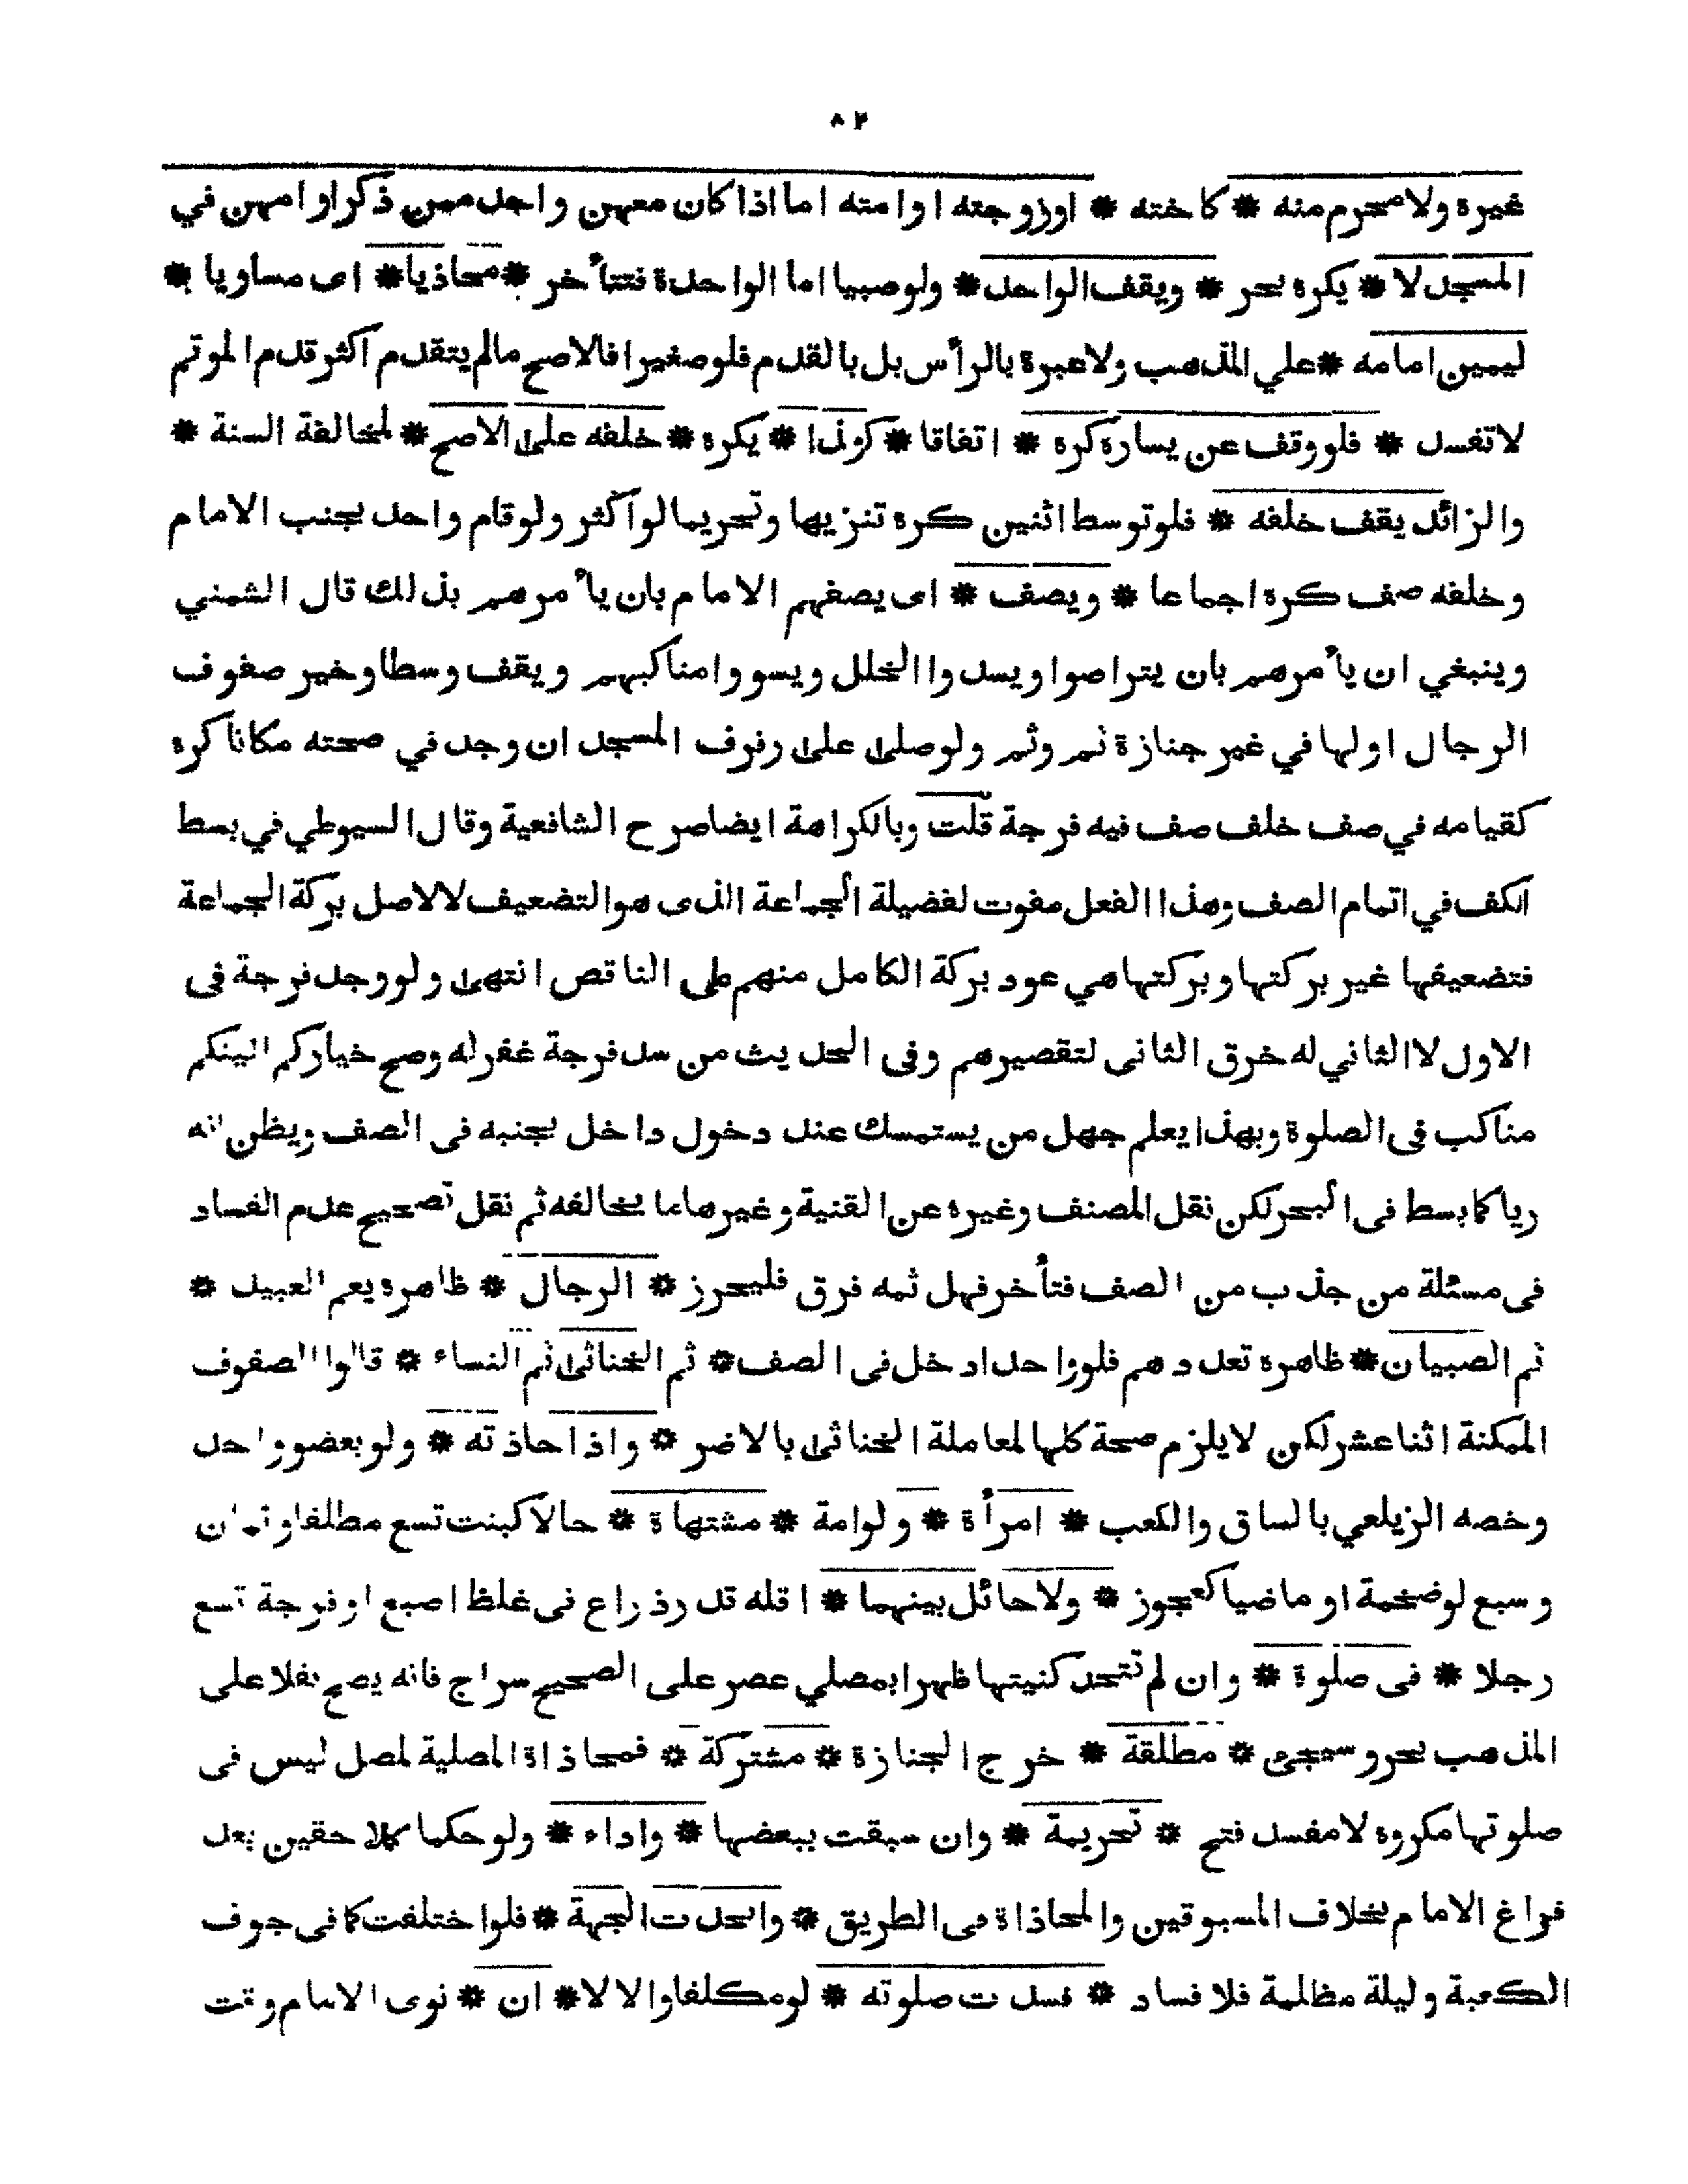 ٨٢
غيره ولا محرم منه * كاخته * اوزوجته اوامته اما اذا كان معهن واحد ممن ذكر او امهن في
المسجد لا * يكره بحر * ويقف الواحد * ولو صبيا اما الواحدة فتتأخر * محاذيا * اى مساويا *
ليمين امامه * علي المذهب ولا عبرة بالرأس بل بالقدم فلو صغيرا فالاصح مالم يتقدم اكثر قدم الموتم
لا تفسد * فلو وقف عن يساره كره * اتفاقا * كذا * يكره * خلفه على الاصح * لمخالفة السنة *
والزائد يقف خلفه * فلو توسط اثنين كره تنزيها وتحريما لو اكثر ولو قام واحد بجنب الامام
وخلفه صف كره اجماعا * ويصف * اى يصفهم الامام بان يأمرهم بذلك قال الشمني
وينبغي ان يأمرهم بان يتراصوا ويسدوا الخلل ويسووا مناكبهم ويقف وسطا وخير صفوف
الرجال اولها في غير جنازة ثم وثم ولو صلى على رفرف المسجد ان وجد في صحته مكانا كره
كقيامه في صف خلف صف فيه فرجة قلت وبالكراهة ايضا صرح الشافعية وقال السيوطي في بسط
الكف في اتمام الصف وهذا الفعل مفوت لفضيلة الجماعة الذى هو التضعيف لا لاصل بركة الجماعة
فتضعيفها غير بركتها وبركتها هي عود بركة الكامل منهم على الناقص انتهى ولو وجد فرجة فى
الاول لا الثاني له خرق الثانى لتقصيرهم وفى الحديث من سد فرجة غفر له وصح خياركم الينكم
مناكب فى الصلوة وبهذا يعلم جهل من يستمسك عند دخول داخل بجنبه فى الصف ويظن انه
ريا كما بسط فى البحر لكن نقل المصنف وغيره عن القنية وغيرها ما يخالفه ثم نقل تصحيح عدم الفساد
فى مسئلة من جذب من الصف فتأخر فهل ثمه فرق فليحرز * الرجال * ظاهره يعم العبيد *
ثم الصبيان * ظاهره تعددهم فلو واحد ادخل فى الصف * ثم الخناثى ثم النساء * قالوا الصفوف
الممكنة اثنا عشر لكن لا يلزم صحة كلها لمعاملة الخناثى بالاضر * واذا حاذته * ولو بعضو واحد
وخصه الزيلعي بالساق والكعب * امرأة * ولو امة * مشتهاة * حالا كبنت تسع مطلقا و ثمان
وسبع لو ضخمة او ماضيا كعجوز * ولا حائل بينهما * اقله قدر ذراع فى غلظ اصبع او فرجة تسع
رجلا * فى صلوة * وان لم تتحد كنيتها ظهرا بمصلي عصر على الصحيح سراج فانه يصح نفلا على
المذهب بحر وسيجئ * مطلقة * خرج الجنازة * مشتركة * فمحاذاة المصلية لمصل ليس فى
صلوتها مكروه لا مفسد فتح * تحريمة * وان سبقت ببعضها * واداء * ولو حكما كلاحقين بعد
فراغ الامام بخلاف المسبوقين والمحاذاة فى الطريق * واتحدت الجهة * فلو اختلفت كما فى جوف
الكعبة وليلة مظلمة فلا فساد * فسدت صلوته * لو مكلفا والا لا * ان * نوى الامام وقت